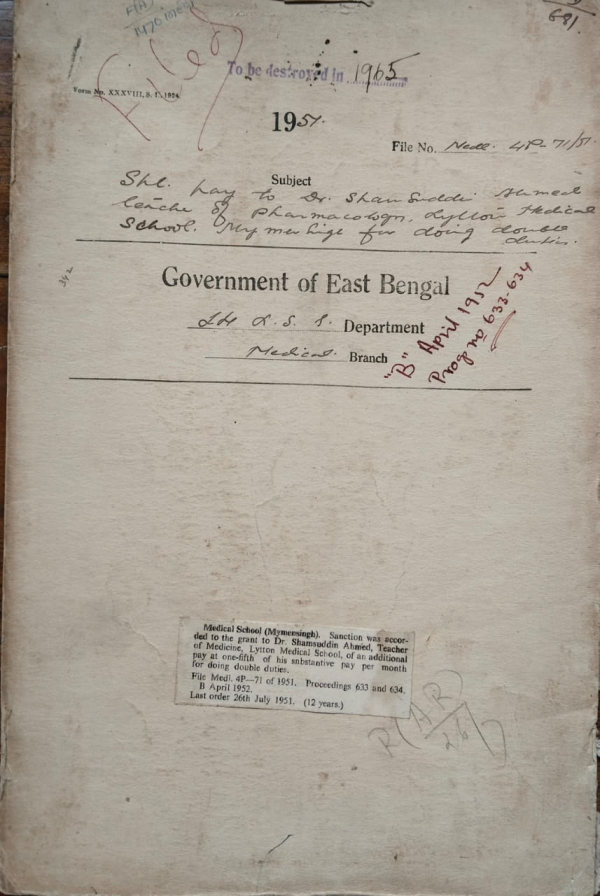 681.
Filed
To be destroyed in 1965
Form No. XXXVIII, S. I., 1924.
1951.
File No. Medl. 4P-71/51.
Subject
Spl. pay to Dr. Shamsuddin Ahmed
teacher of Pharmacology, Lytton Medical
School. Mymensingh for doing double
duties.
342
Government of East Bengal
Department
Medical. Branch
"B" April 1952
Prog no 633-634
Medical School (Mymensingh). Sanction was accor-
ded to the grant to Dr. Shamsuddin Ahmed, Teacher
of Medicine, Lytton Medical School, of an additional
pay at one-fifth of his substantive pay per month
for doing double duties.
File Medl. 4P—71 of 1951. Proceedings 633 and 634.
B April 1952.
Last order 26th July 1951. (12 years.)